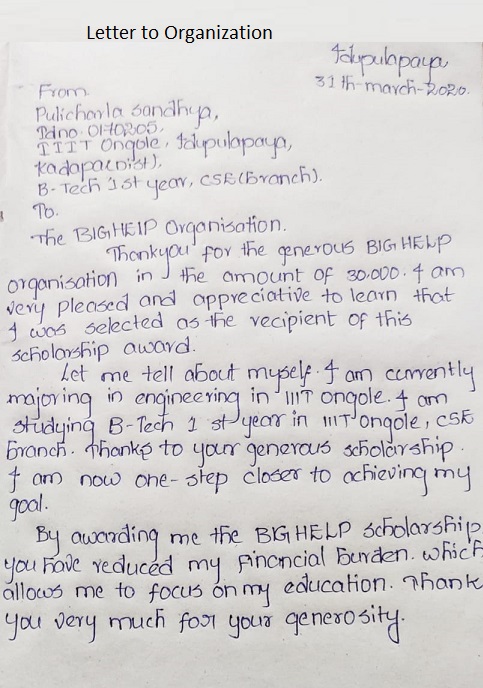 Letter to Organization
Idupulapaya
31th-march-2020.
From
Pulicharla Sandhya,
Idno. 0170205.
IIIT Ongole, Idupulapaya,
Kadapa(Dist).
B-Tech 1st year, CSE(Branch).
To.
The BIGHElP Organisation.
Thankyou for the generous BIG HELP
organisation in the amount of 30.000. I am
very pleased and appreciative to learn that
I was selected as the recipient of this
scholarship award.
Let me tell about myself. I am currently
majoring in engineering in IIIT ongole. I am
studying B-Tech 1 st year in IIIT ongole, CSE
Branch. Thanks to your generous scholarship.
I am now one-step closer to achieving my
goal.
By awarding me the BIG HELP scholarship
you have reduced my financial burden. which
allows me to focus on my education. Thank
you very much for your generosity.